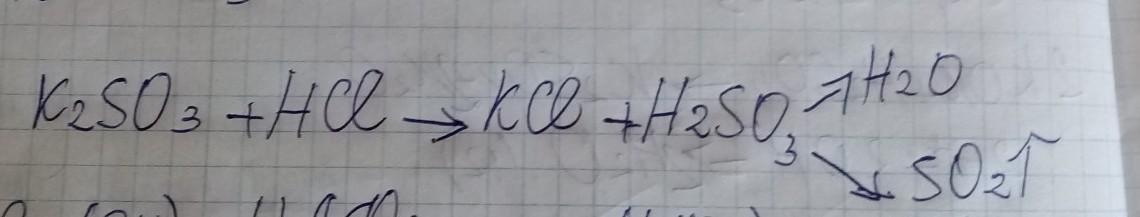 K₂SO₃ + HCl → KCl + H₂SO₃ ↗ H₂O
↘ SO₂↑